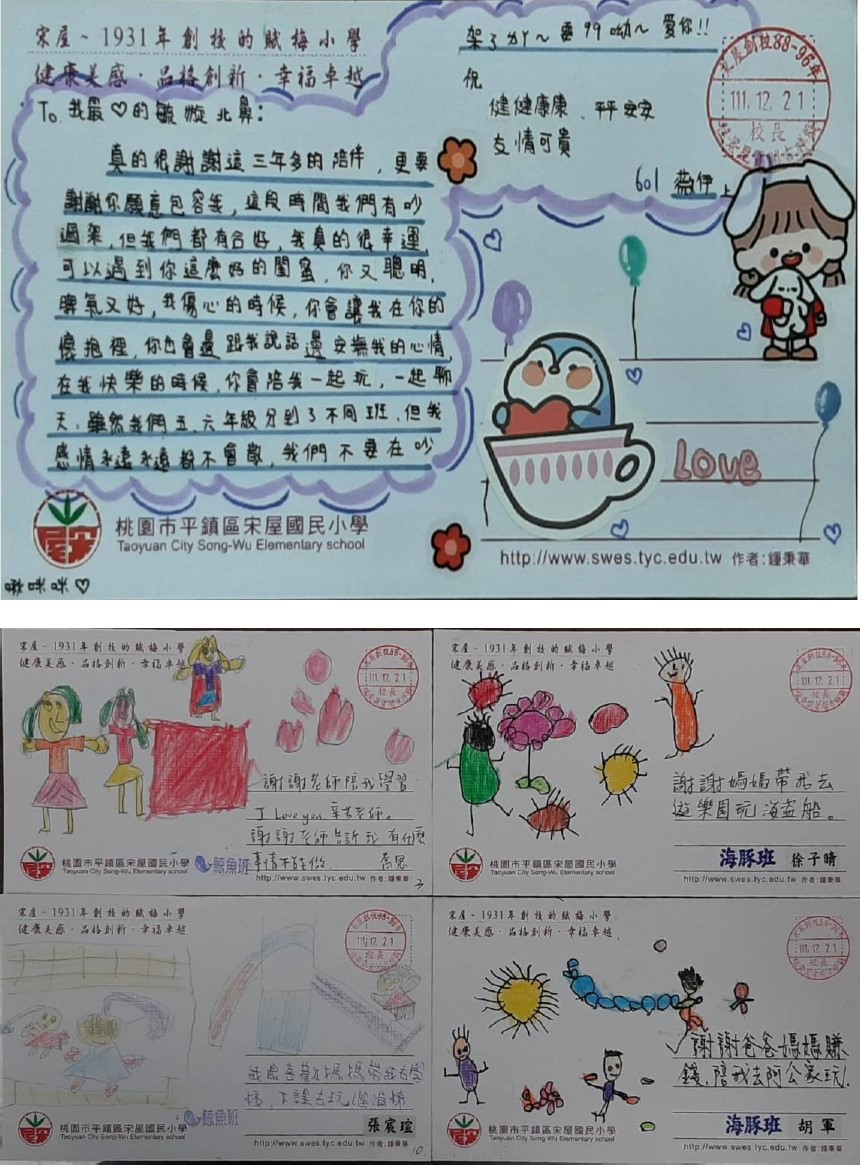 宋屋~1931年創校的賦梅小學
健康美感·品格創新·幸福卓越
To.我最♡的毓旋北鼻:
真的很謝謝這三年多的陪伴,更要
謝謝你願意包容我,這段時間我們有吵
過架,但我們都有合好,我真的很幸運
可以遇到你這麼好的閨蜜,你又聰明,
脾氣又好,我傷心的時候,你會讓我在你的
懷抱裡,你也會邊跟我說話邊安撫我的心情,
在我快樂的時候,你會陪我一起玩,一起聊
天,雖然我們五、六年級分到了不同班,但我
感情永遠永遠都不會散,我們不要在吵
架了ㄉㄚ~要99呦~愛你!!
祝
健健康康、平平安安
友情可貴
601 薇伊上
宋屋創校88-96年
111.12.21
校長
Love
桃園市平鎮區宋屋國民小學
Taoyuan City Song-Wu Elementary school
http://www.swes.tyc.edu.tw 作者:鍾秉華
啾咪咪♡
宋屋~1931年創校的賦梅小學
健康美感·品格創新·幸福卓越
111.12.21
校長
謝謝老師陪我學習.
I Love you 辛苦老師。
謝謝老師告訴我有什麼
事情不能做
鯨魚班
桃園市平鎮區宋屋國民小學
Taoyuan City Song-Wu Elementary school
http://www.swes.tyc.edu.tw 作者:鍾秉華
3
宋屋~1931年創校的賦梅小學
健康美感·品格創新·幸福卓越
111.12.21
校長
謝謝媽媽帶我去
遊樂園玩海盜船。
海豚班 徐子晴
桃園市平鎮區宋屋國民小學
Taoyuan City Song-Wu Elementary school
http://www.swes.tyc.edu.tw 作者:鍾秉華
宋屋~1931年創校的賦梅小學
健康美感·品格創新·幸福卓越
111.12.21
校長
我最喜歡媽媽帶我去學
校,下課去玩溜滑梯
鯨魚班 張宸瑄
桃園市平鎮區宋屋國民小學
Taoyuan City Song-Wu Elementary school
http://www.swes.tyc.edu.tw 作者:鍾秉華
10
宋屋~1931年創校的賦梅小學
健康美感·品格創新·幸福卓越
111.12.21
校長
謝謝爸爸媽媽賺
錢,陪我去阿公家玩!
海豚班 胡軍
桃園市平鎮區宋屋國民小學
Taoyuan City Song-Wu Elementary school
http://www.swes.tyc.edu.tw 作者:鍾秉華